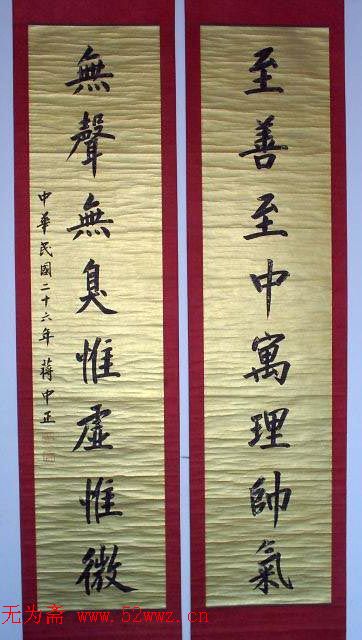 至善至中寓理帥氣
無聲無臭惟虛惟微
中華民國二十六年 蔣中正
无为斋 www.52wwz.cn